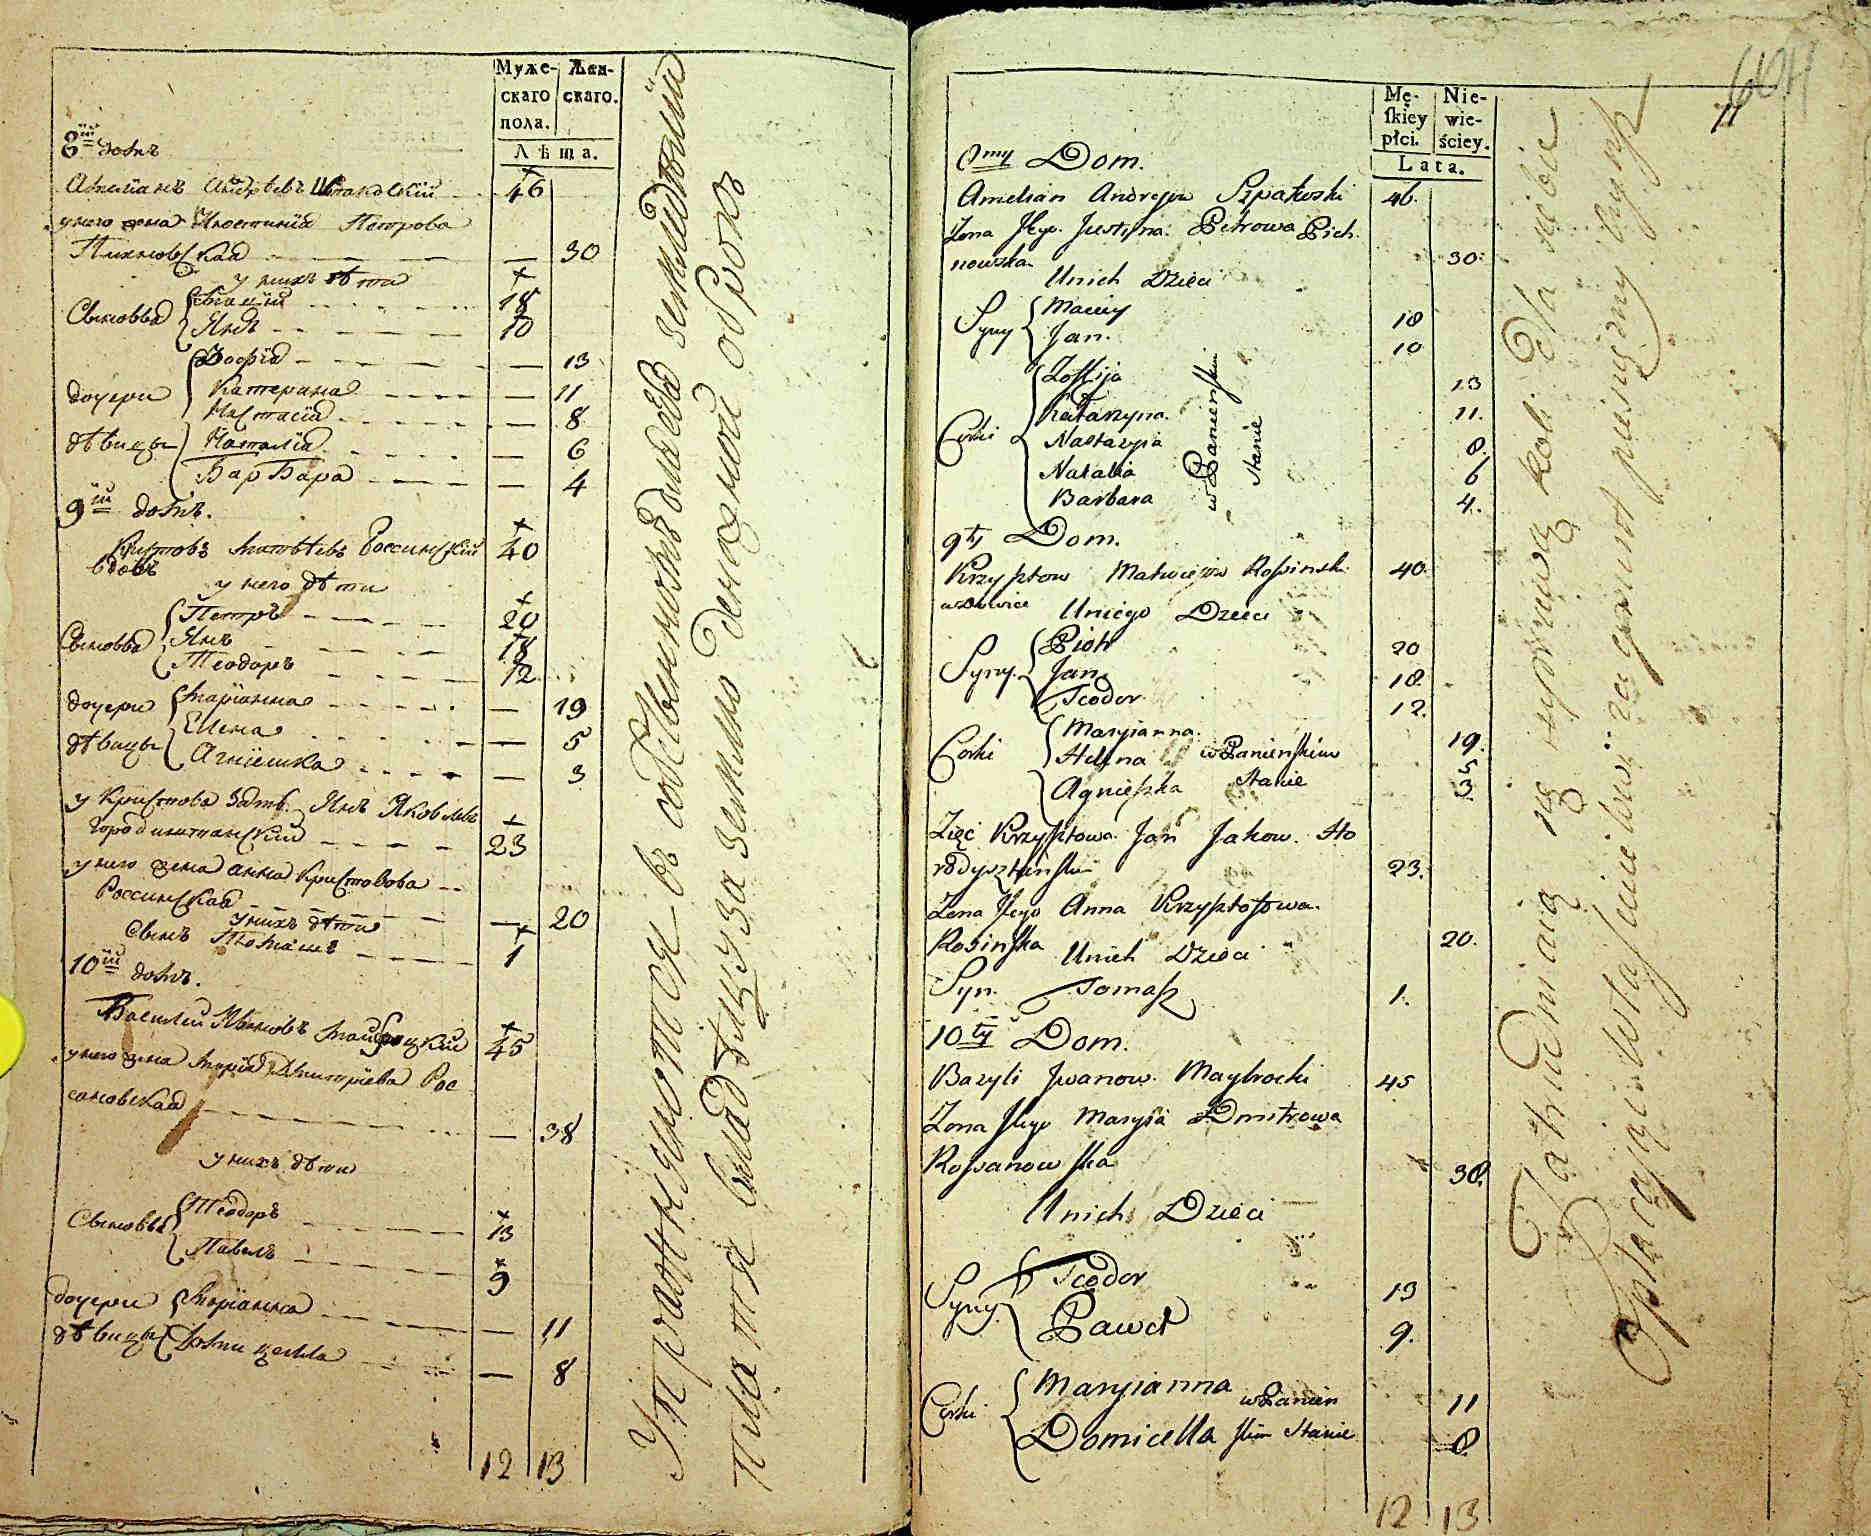 Муже-
скаго
пола.
Жен-
скаго.
Лѣта.
8ій домъ
Амиліанъ Андрѣевъ Шпаковскій 46
у него жена Іюстинія Петрова
Пихновская 30
у нихъ дѣти
Сыновья Мацій 18
Янъ 10
дочери Зофія 13
Катерина 11
Настасія 8
дѣвицы Наталія 6
Барбара 4
9ій домъ.
Криштовъ Матвѣевъ Россинскій 40
вдовъ
у него дѣти
Сыновья Петръ 20
Янъ 18
Теодоръ 12
дочери Маріанна 19
Елена 5
дѣвицы Агніешка 3
у Криштова Зять Янъ Яковлевъ
23
у него жена Анна Криштовова
Россинская 20
у нихъ дѣти
Сынъ Томашъ 1
10ій домъ.
Василій Ивановъ 45
у него жена Марія Дмитріева Рос
сановская 38
у нихъ дѣти
Сыновья Теодоръ 13
Павелъ 9
дочери Маріанна 11
дѣвицы Домицелла 8
12 13
Упражняются въ
платя за землю денежной оброкъ
Mę-
skiey
płci.
Nie-
wie-
ściey.
Lata.
11
8my Dom.
Amelian Andrejew Szpakoski 46.
Zona Jego Justyna Petrowa Pich
nowska 30
Unich Dzieci
Syny Maciey 18
Jan. 10
Corki Zoffija 13
Katarzyna 11.
Nastazyia 8.
Natalia 6
Barbara 4.
w Panieńskim
Stanie
9ty Dom.
Krzysztow Matwiejew Rossinski 40.
wdowiec Uniego Dzieci
Syny Piotr 20
Jan 18.
Teodor 12.
Corki Maryianna 19.
Hellena w Panieńskim 5
Agnieszka Stanie 3
Zięć Krzysztowa Jan Jakow. Ho
rodysztański 23.
Zona Jego Anna Krzysztofowa
Rosinska 20.
Unich Dzieci
Syn Tomasz 1.
10ty Dom.
Bazyli Iwanow Maybrocki 45
Zona Jego Maryia Dmitrowa
Rossanowska 38.
Unich Dzieci
Syny Teodor 13
Paweł 9.
Corki Maryianna w Panien 11
Domicella skim Stanie 8
12 13
Zatrudniaią się uprawą roli dla siebie
Opłacaiąc za grunt pieniężny czynsz